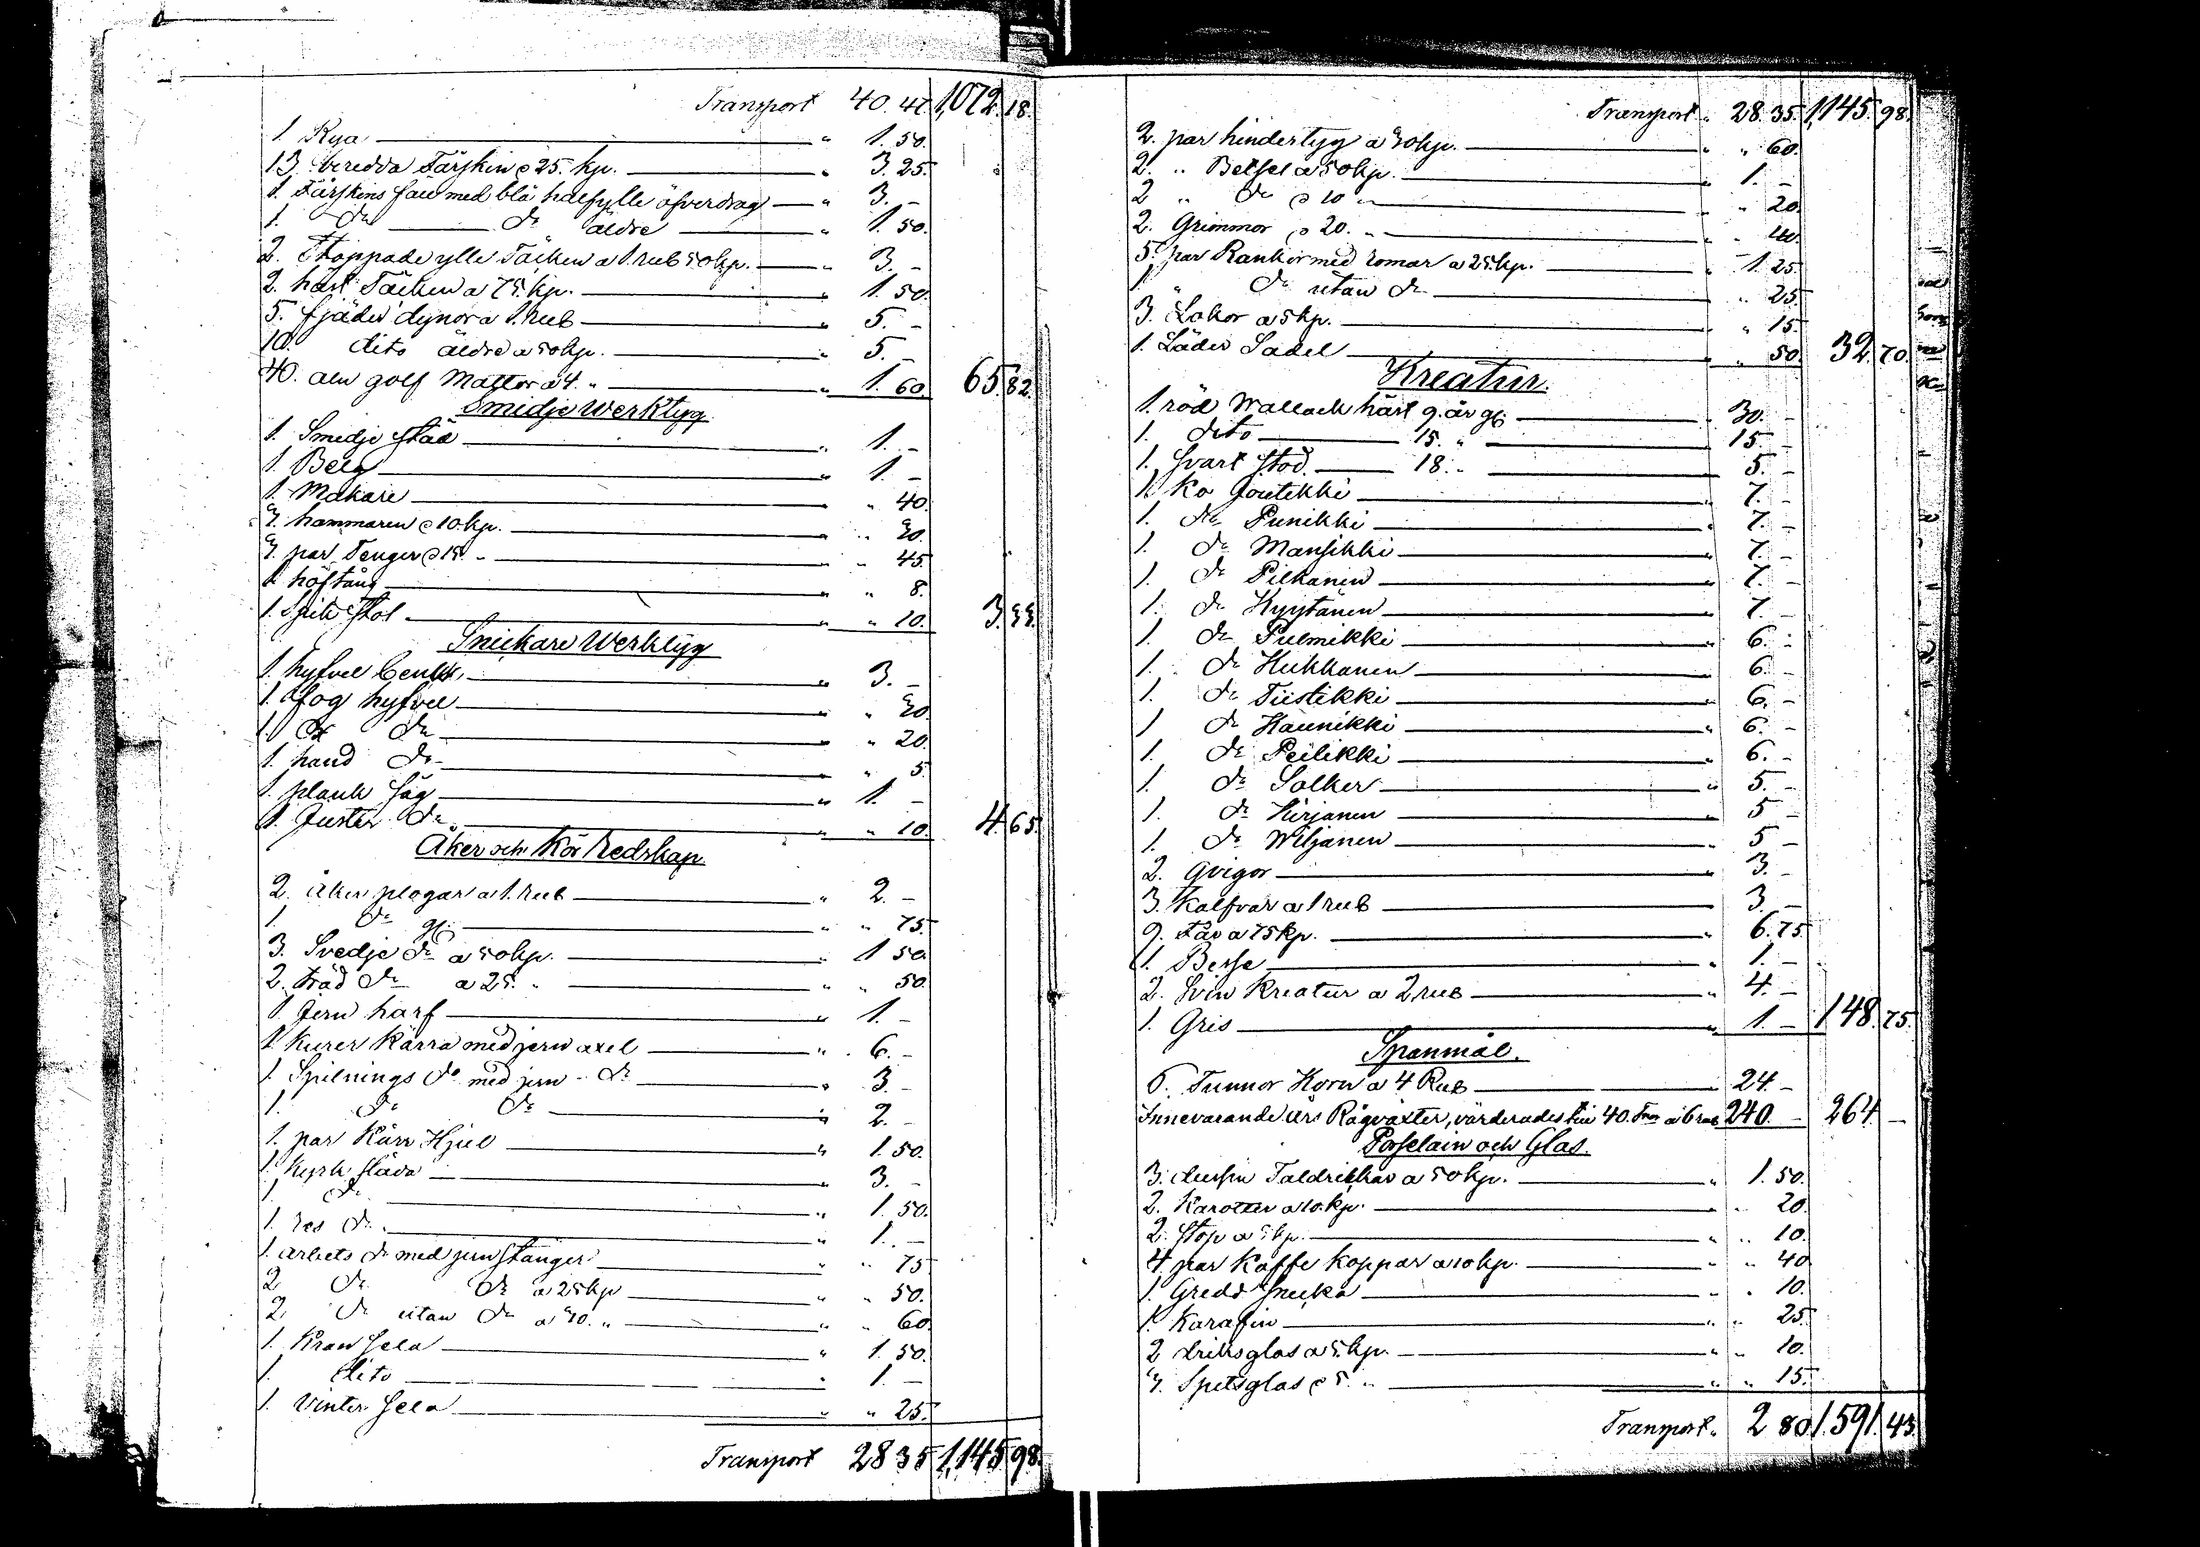 Transport 40. 47. 1,072. 18.
1. Rya " 1. 50.
13. beredda Fårskin a 25. kp. " 3. 25.
1. Fårskins fäll med blå halfylle öfverdrag " 3. -
1. do do äldre " 1. 50.
2. Stoppade ylle Täcken a 1. rub 50 kp. " 3. -
2. häst Täcken a 75. kp. " 1. 50.
5. fjäder dynor a 1. rub " 5. -
10. dito äldre a 50 kp. " 5. -
40. aln golf Mattor a 4. " " 1. 60. 65. 82.
Smidje Werktyg
1. Smedje städ " 1. -
1. Belg " 1. -
1. Makare " " 40.
3. hammaren a 10. kp. " " 30.
3. par Tenger a 15. " " " 45.
1. höftång " " 8.
1. Spik stol " " 10. 3. 33.
Snickare Werktyg
1. hyfvel benk " 3. -
1. fog hyfvel " " 30.
1. Ox do " " 20.
1. hand do " " 5.
1. plank såg " 1. -
1. Juster do " " 10. 4. 65.
Åker och Kör Redskap
2. åker plogar a 1. rub " 2. -
1. do gl. " " 75.
3. Svedje do a 50 kp. " 1 50.
2. träd do a 25. " " " 50.
1. Jern harf " 1. -
1. Kurer Kärra med jern axel " 6. -
1. Spilnings do med jern do " 3 -
1. do do " 2. -
1. par Kärr Hjul " 1. 50.
1. Kyrk släda " 3. -
1. do " 1. 50.
1. res do " 1. -
1. arbets do med jern stänger " " 75
2 do do a 25 kp " " 50.
2 do utan do a 30. " " " 60.
1. Kran sela " 1. 50.
1. dito " 1. -
1. Vinter sela " " 25.
Transport 28 35 1,145 98.
Transport " 28. 35. 1,145. 98.
2. par hindertyg a 30 kp. " " 60.
2. " Betsel a 50 kp. " 1. -
2 " do a 10 " " " 20.
2. Grimmor a 20. " " " 40.
5. par Rankor med romar a 25. kp. " 1. 25.
1. " do utan do " 25.
3. Lokor a 5 kp. " " 15.
1. Läder Sadel " " 50. 32. 70.
Kreatur.
1. röd Wallack häst 9. år gl. " 30. -
1. dito 15. " " 15 -
1. Svart Stod. 18. " 5. -
1. Ko Joutikki " 7. -
1. do Punikki " 7. -
1. do Mansikki " 7. -
1. do Pilkanen " 7. -
1. do Kyytänen " 7. -
1. do Pulmikki " 6. -
1. do Kukkanen " 6. -
1. do Tiistikki " 6. -
1 do Kaunikki " 6. -
1. do Peilikki " 6. -
1. do Solker " 5. -
1. do Kirjanen " 5 -
1. do Wiljanen " 5 -
2. Qvigor " 3. -
3. Kalfvar a 1 rub 3. -
9. Får a 75 kp. " 6. 75.
1. Besse " 1. -
2. Svin Kreatur a 2 rub " 4. -
1. Gris " 1. - 148. 75.
Spanmål.
6. Tunnor Korn a 4 Rub 24. -
Innevarande års Rågväxter, värderades till 40. Tnr a 6 rub 240. - 264. -
Porselain och Glas.
3. dussin Taldrikkar a 50 kp. " 1. 50.
2. Karotter a 10. kp. " " 20.
2. Stop a 5 kp. " " 10.
4. par Kaffe koppar a 10 kp. " " 40
1. Gredd snecka " " 10.
1. Karafin " " 25
2 driksglas a 5. kp. " " 10.
3. Spetsglas a 5. " " " 15.
Transport " 2 80 1.591. 43.